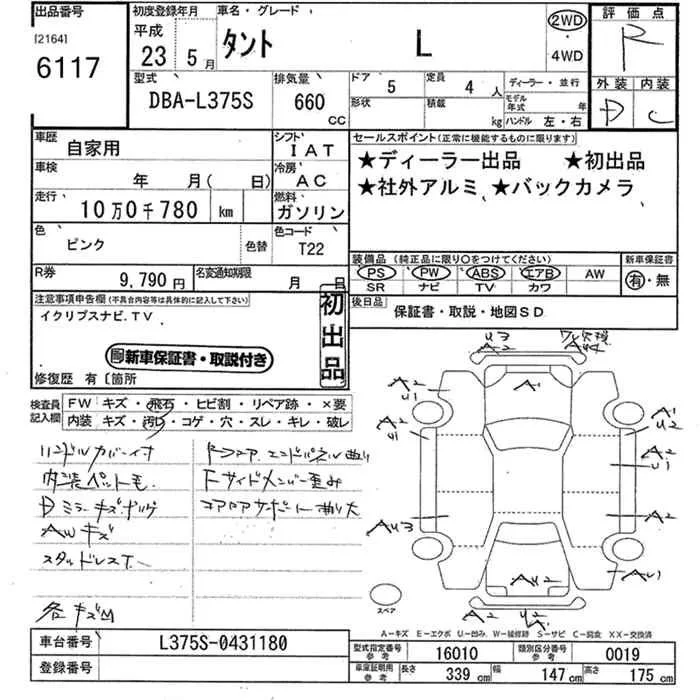 出品番号
[2164]
6117
初度登録年月
平成
23 5 月
車名・グレード
タント L
2WD
・
4WD
評価点
R
外装 内装
D C
型式
DBA-L375S
排気量
660
CC
ドア 5
定員 4 人
形状
積載 kg
ディーラー・並行
モデル年式 年
ハンドル 左・右
車歴
自家用
シフト
IAT
車検
年 月( 日)
冷房
AC
走行
10万0千780 km
燃料
ガソリン
色
ピンク
色替
色コード
T22
R券
9,790 円
名変通知期限
月 日
セールスポイント(正常に機能するものに限ります)
★ディーラー出品 ★初出品
★社外アルミ、★バックカメラ
装備品(純正品に限り○をつけてください)
PS PW ABS エアB AW
SR ナビ TV カワ
新車保証書
有・無
後日品
保証書・取説・地図SD
注意事項申告欄(不具合内容等は具体的に記入して下さい)
イクリプスナビ.TV
初出品
新車保証書・取説付き
修復歴 有〔箇所
検査員
記入欄
FW キズ・飛石・ヒビ割・リペア跡・×要
内装 キズ・汚レ・コゲ・穴・スレ・キレ・破レ
ハンドルカバー付
内装ペット毛
Dミラーキズ
AWキズ
スタッドレスT.
各キズ
Fサイドメンバー歪み
コアロアサポート曲り大
U3
A2
A1
A2
U1
A2
U1
A1
U2
A2
U1
AU3
A2
AU1
AU2
A2
U2
スペア
A-キズ E-エクボ U-凹み W-補修跡 S-サビ C-腐食 XX-交換済
車台番号
L375S-0431180
登録番号
型式指定番号
参考
16010
類別区分番号
参考
0019
車庫証明用
参考
長さ 339 cm
幅 147 cm
高さ 175 cm